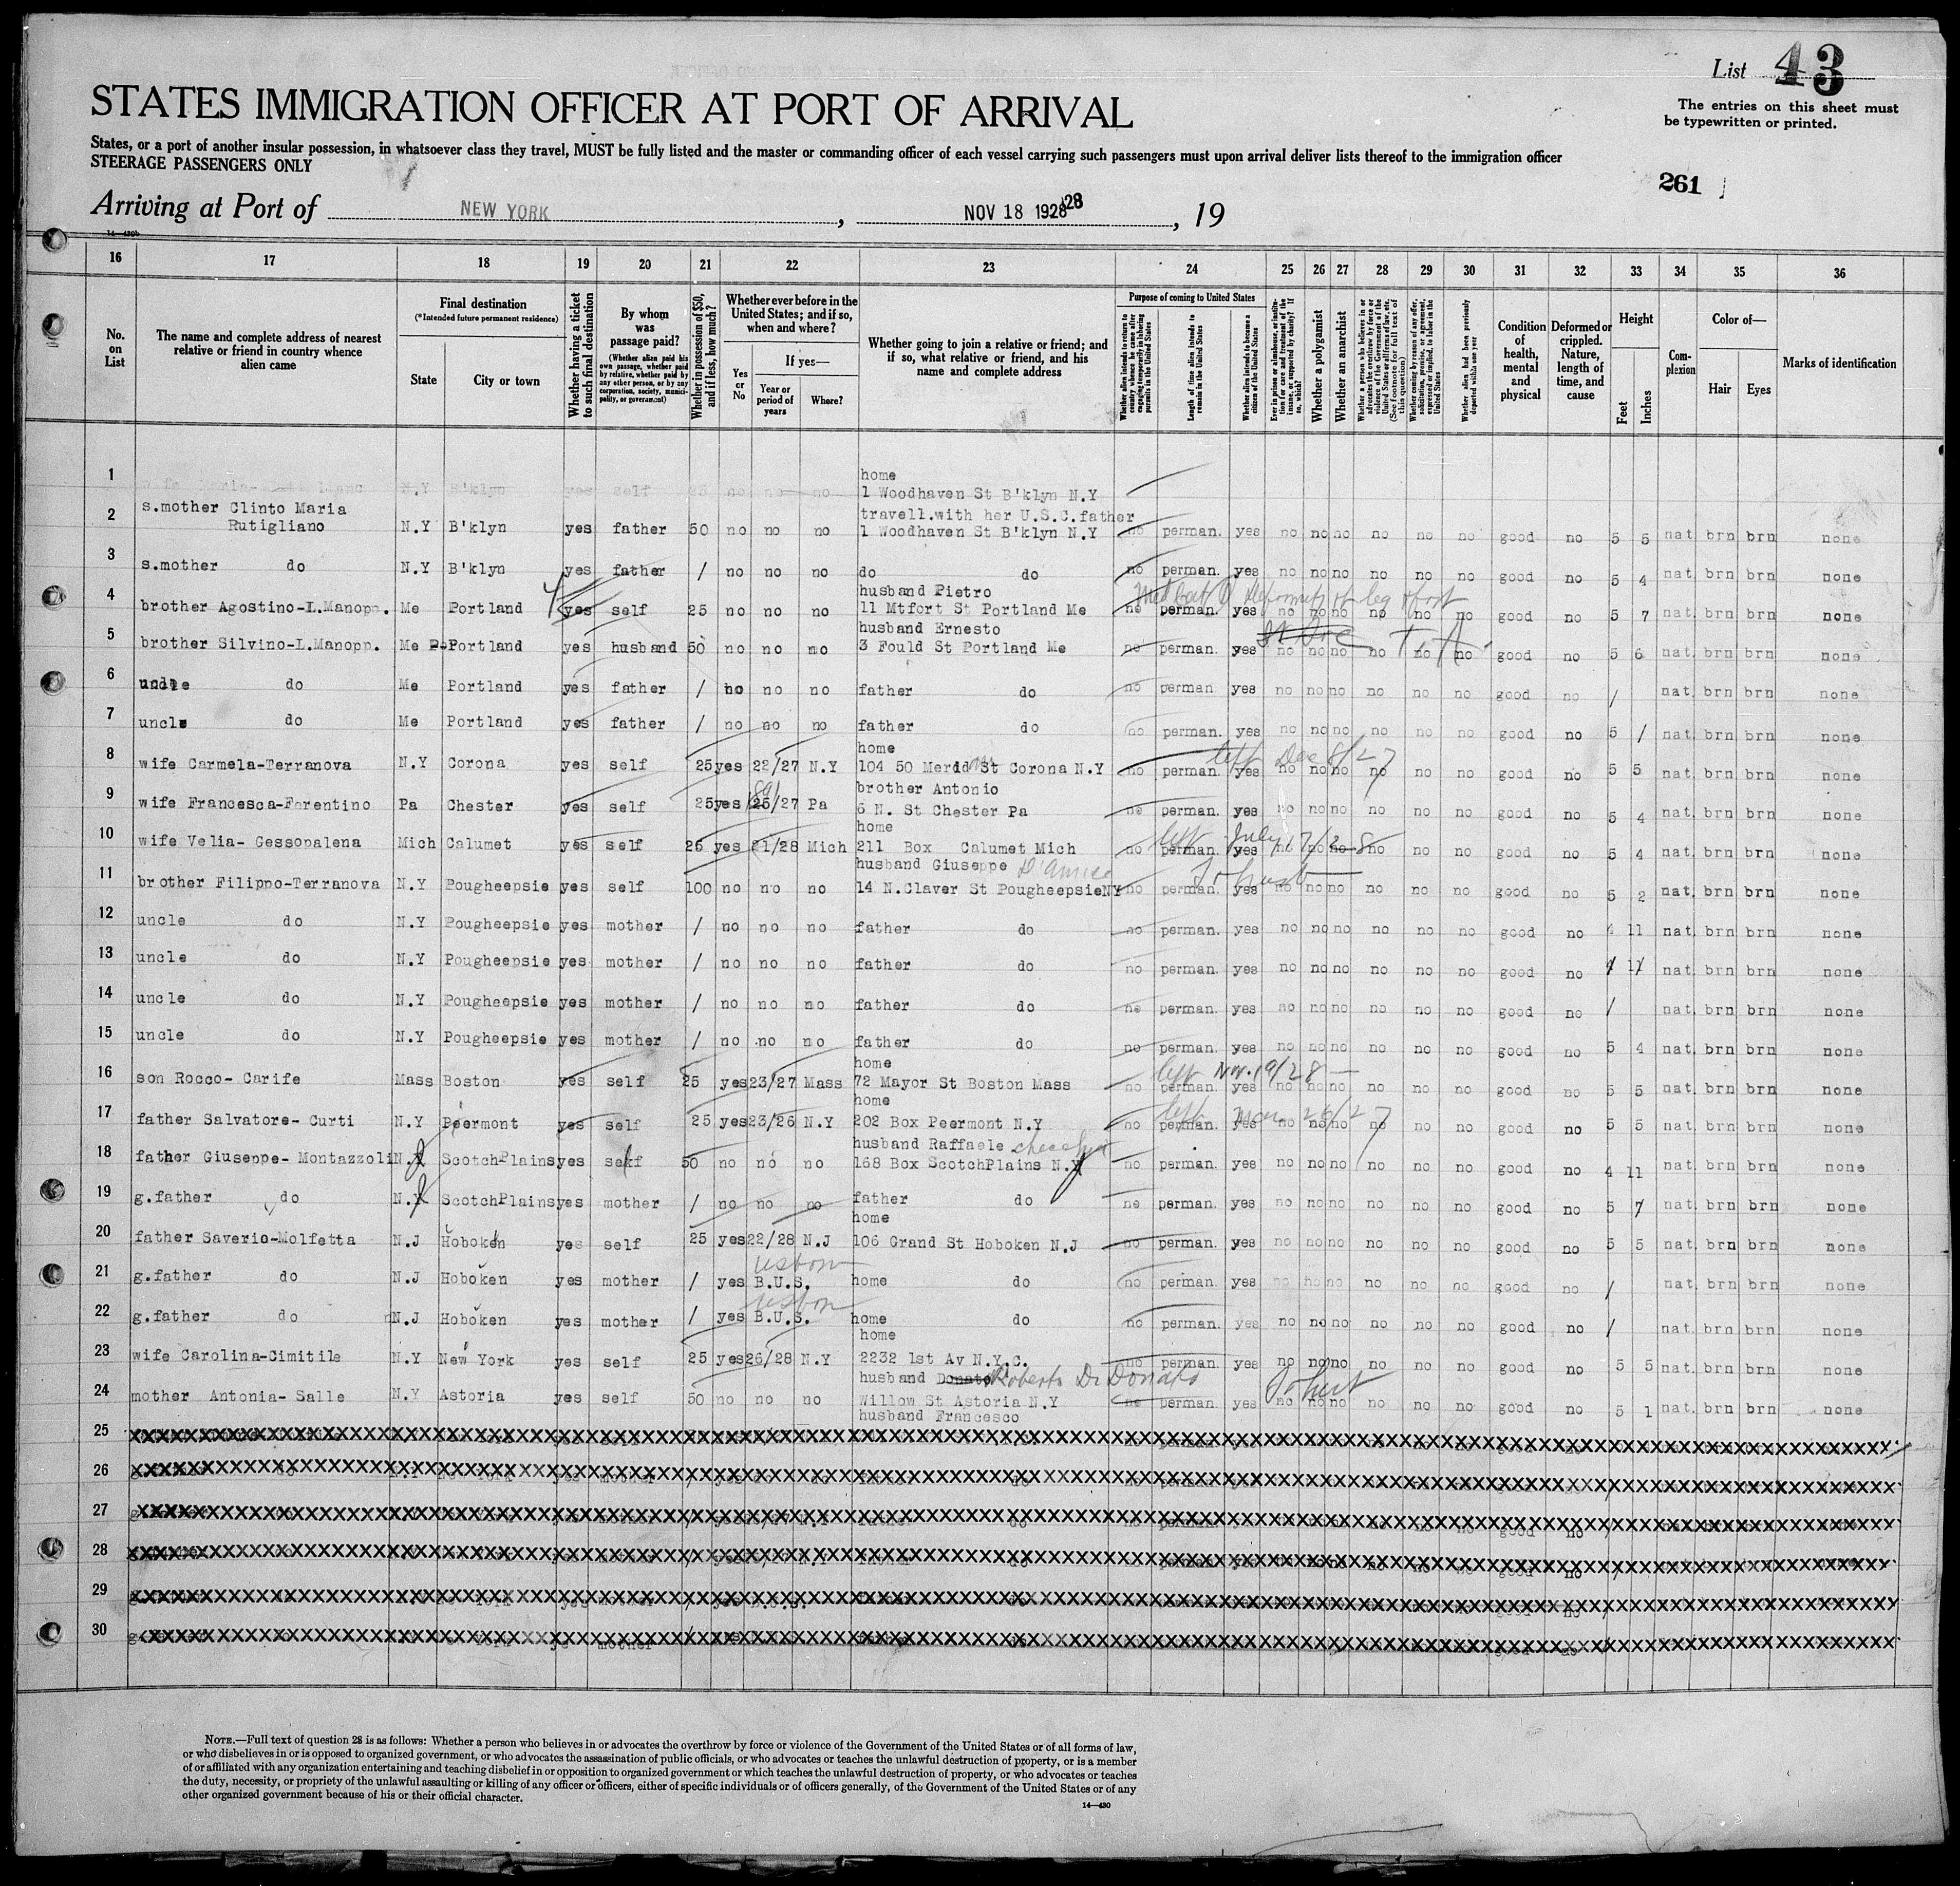 List 43
The entries on this sheet must
be typewritten or printed.
STATES IMMIGRATION OFFICER AT PORT OF ARRIVAL
States, or a port of another insular possession, in whatsoever class they travel, MUST be fully listed and the master or commanding officer of each vessel carrying such passengers must upon arrival deliver lists thereof to the immigration officer
STEERAGE PASSENGERS ONLY
261
Arriving at Port of NEW YORK, NOV 18 1928 28, 19
16 17 18 19 20 21 22 23 24 25 26 27 28 29 30 31 32 33 34 35 36
No. on List
The name and complete address of nearest relative or friend in country whence alien came
Final destination
(*Intended future permanent residence)
State
City or town
Whether having a ticket to such final destination
By whom was passage paid?
(Whether alien paid his own passage, whether paid by relative, whether paid by any other person, or by any corporation, society, municipality, or government)
Whether in possession of $50, and if less, how much?
Whether ever before in the United States; and if so, when and where?
Yes or No
If yes—
Year or period of years
Where?
Whether going to join a relative or friend; and if so, what relative or friend, and his name and complete address
Purpose of coming to United States
Whether alien intends to return to country whence he came after engaging temporarily in laboring pursuits in the United States
Length of time alien intends to remain in the United States
Whether alien intends to become a citizen of the United States
Ever in prison or almshouse, or institution for care and treatment of the insane, or supported by charity? If so, which?
Whether a polygamist
Whether an anarchist
Whether a person who believes in or advocates the overthrow by force or violence of the Government of the United States or all forms of law, etc. (See footnote for full text of this question)
Whether coming by reason of any offer, solicitation, promise, or agreement, expressed or implied, to labor in the United States
Whether alien had been previously deported within one year
Condition of health, mental and physical
Deformed or crippled. Nature, length of time, and cause
Height
Feet
Inches
Complexion
Color of—
Hair
Eyes
Marks of identification
1 N.Y B'klyn yes self 25 no no no home
1 Woodhaven St B'klyn N.Y
2 s.mother Clinto Maria travell.with her U.S.C.father
Rutigliano N.Y B'klyn yes father 50 no no no 1 Woodhaven St B'klyn N.Y no perman. yes no no no no no no good no 5 5 nat. brn brn none
3 s.mother do N.Y B'klyn yes father / no no no do do no perman. yes no no no no no no good no 5 4 nat. brn brn none
husband Pietro
4 brother Agostino-L.Manopp. Me Portland yes self 25 no no no 11 Mtfort St Portland Me no perman. yes no no no no no no good no 5 7 nat. brn brn none
deformity of leg & foot
husband Ernesto
5 brother Silvino-L.Manopp. Me Portland yes husband 50 no no no 3 Fould St Portland Me no perman. yes no no no no no no good no 5 6 nat. brn brn none
6 uncle do Me Portland yes father / no no no father do no perman. yes no no no no no no good no / nat. brn brn none
7 uncle do Me Portland yes father / no no no father do no perman. yes no no no no no no good no 5 / nat. brn brn none
home left Dec 8/27
8 wife Carmela-Terranova N.Y Corona yes self 25 yes 22/27 N.Y 104 50 St Corona N.Y no perman. yes no no no no no no good no 5 5 nat. brn brn none
brother Antonio
9 wife Francesca-Ferentino Pa Chester yes self 25 yes 25/27 Pa 6 N. St Chester Pa no perman. yes no no no no no no good no 5 4 nat. brn brn none
home left July 17/28
10 wife Velia- Gessopalena Mich Calumet yes self 25 yes 21/28 Mich 211 Box Calumet Mich no perman. yes no no no no no no good no 5 4 nat. brn brn none
husband Giuseppe D'Amico To husb
11 brother Filippo-Terranova N.Y Pougheepsie yes self 100 no no no 14 N.Claver St PougheepsieNY no perman. yes no no no no no no good no 5 2 nat. brn brn none
12 uncle do N.Y Pougheepsie yes mother / no no no father do no perman. yes no no no no no no good no 4 11 nat. brn brn none
13 uncle do N.Y Pougheepsie yes mother / no no no father do no perman. yes no no no no no no good no 4 11 nat. brn brn none
14 uncle do N.Y Pougheepsie yes mother / no no no father do no perman. yes no no no no no no good no / nat. brn brn none
15 uncle do N.Y Pougheepsie yes mother / no no no father do no perman. yes no no no no no no good no 5 4 nat. brn brn none
home left Nov. 19/28
16 son Rocco- Carife Mass Boston yes self 25 yes 23/27 Mass 72 Mayor St Boston Mass no perman. yes no no no no no no good no 5 5 nat. brn brn none
home left 26/27
17 father Salvatore- Curti N.Y Peermont yes self 25 yes 23/26 N.Y 202 Box Peermont N.Y no perman. yes no no no no no no good no 5 5 nat. brn brn none
husband Raffaele
18 father Giuseppe- Montazzoli N.J ScotchPlains yes self 50 no no no 168 Box ScotchPlains N.J no perman. yes no no no no no no good no 4 11 nat. brn brn none
19 g.father do N.J ScotchPlains yes mother / no no no father do no perman. yes no no no no no no good no 5 7 nat. brn brn none
home
20 father Saverio-Molfetta N.J Hoboken yes self 25 yes 22/28 N.J 106 Grand St Hoboken N.J no perman. yes no no no no no no good no 5 5 nat. brn brn none
usborn
21 g.father do N.J Hoboken yes mother / yes B.U.S. home do no perman. yes no no no no no no good no / nat. brn brn none
usborn
22 g.father do N.J Hoboken yes mother / yes B.U.S. home do no perman. yes no no no no no no good no / nat. brn brn none
home
23 wife Carolina-Cimitile N.Y New York yes self 25 yes 26/28 N.Y 2232 1st Av N.Y.C. no perman. yes no no no no no no good no 5 5 nat. brn brn none
husband Donato Roberto Di Donato To husb
24 mother Antonia- Salle N.Y Astoria yes self 50 no no no Willow St Astoria N.Y no perman. yes no no no no no no good no 5 1 nat. brn brn none
husband Francesco
25
26
27
28
29
30
NOTE.—Full text of question 28 is as follows: Whether a person who believes in or advocates the overthrow by force or violence of the Government of the United States or of all forms of law,
or who disbelieves in or is opposed to organized government, or who advocates the assassination of public officials, or who advocates or teaches the unlawful destruction of property, or is a member
of or affiliated with any organization entertaining and teaching disbelief in or opposition to organized government or which teaches the unlawful destruction of property, or who advocates or teaches
the duty, necessity, or propriety of the unlawful assaulting or killing of any officer or officers, either of specific individuals or of officers generally, of the Government of the United States or of any
other organized government because of his or their official character.
14—430